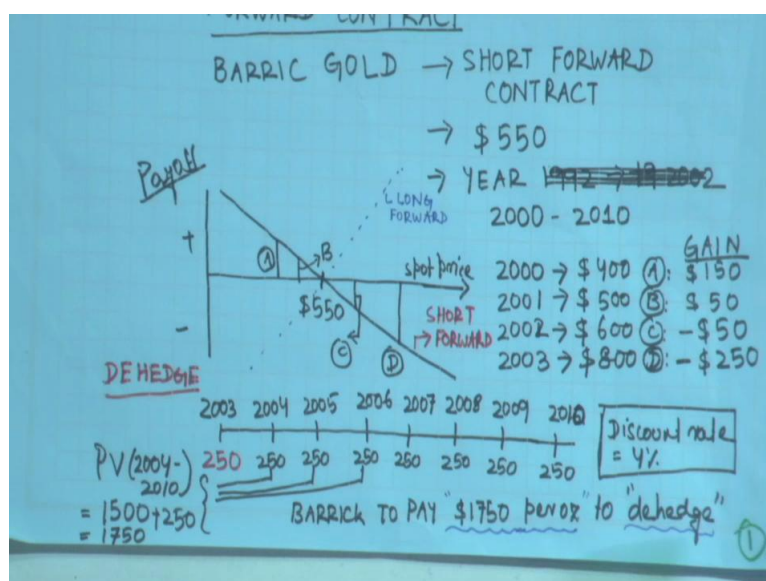 FORWARD CONTRACT
BARRIC GOLD → SHORT FORWARD
CONTRACT
→ $ 550
→ YEAR
2000 - 2010
Payoff
LONG
FORWARD
+
A
B
spot price
$550
-
SHORT
FORWARD
C
D
GAIN
2000 → $ 400 A: $ 150
2001 → $ 500 B: $ 50
2002 → $ 600 C: - $ 50
2003 → $ 800 D: - $ 250
DEHEDGE
2003 2004 2005 2006 2007 2008 2009 2010
250 250 250 250 250 250 250 250
Discount rate
= 4%
PV (2004-
2010)
= 1500+250
= 1750
BARRICK TO PAY "$1750 per oz" to "dehedge"
1